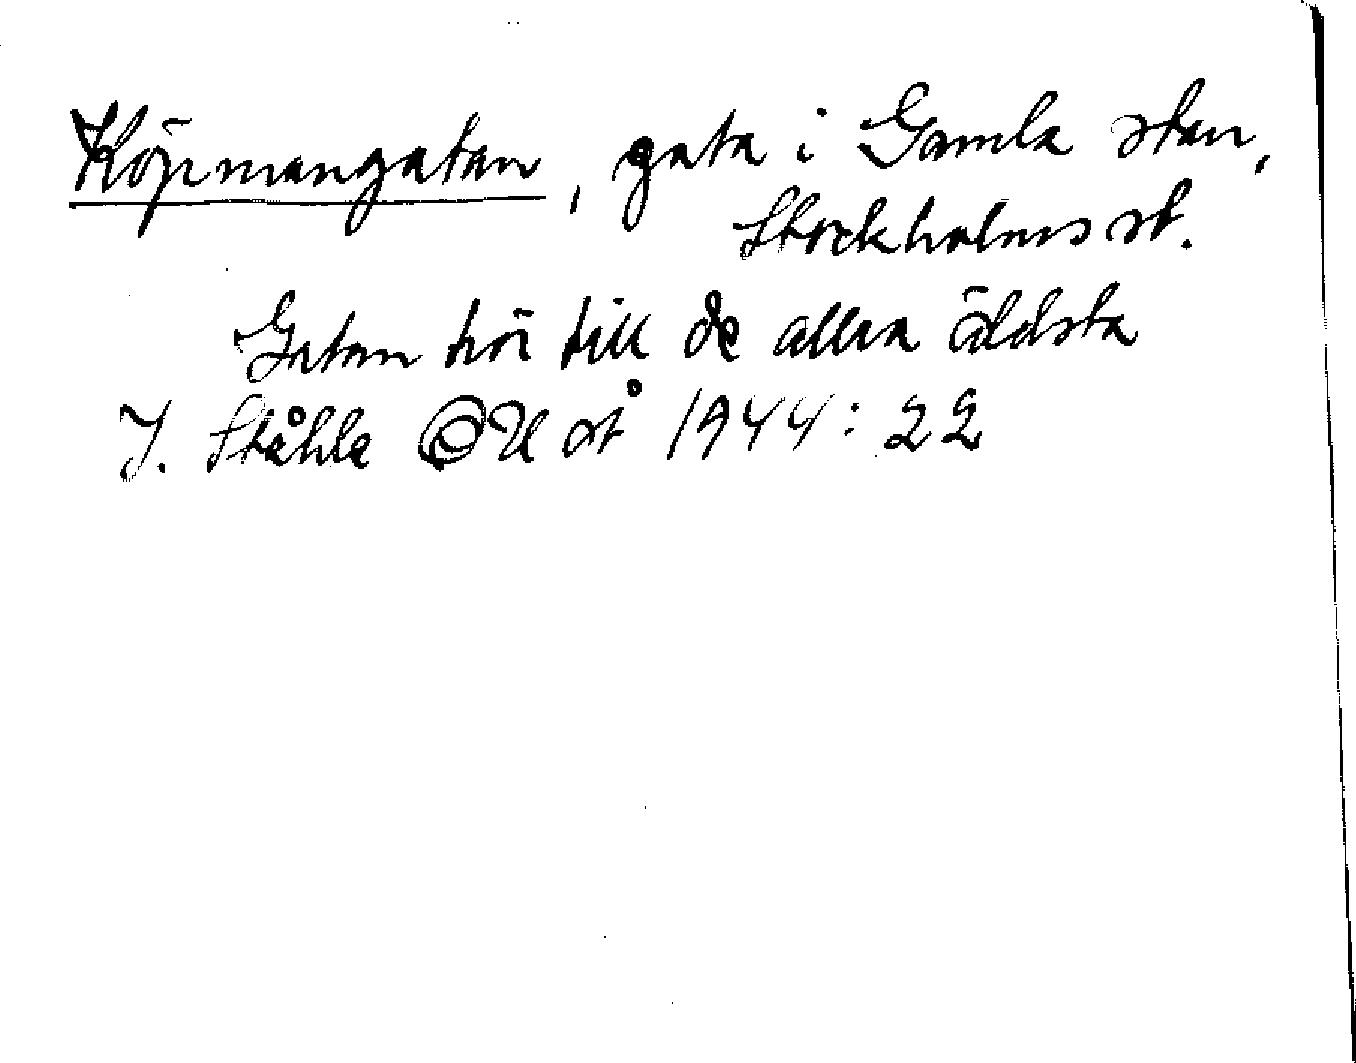 Köpmangatan, gata i Gamla stan,
Stockholms st.
Gatan hör till de allra äldsta
J. Ståhle OU stå 1944: 22